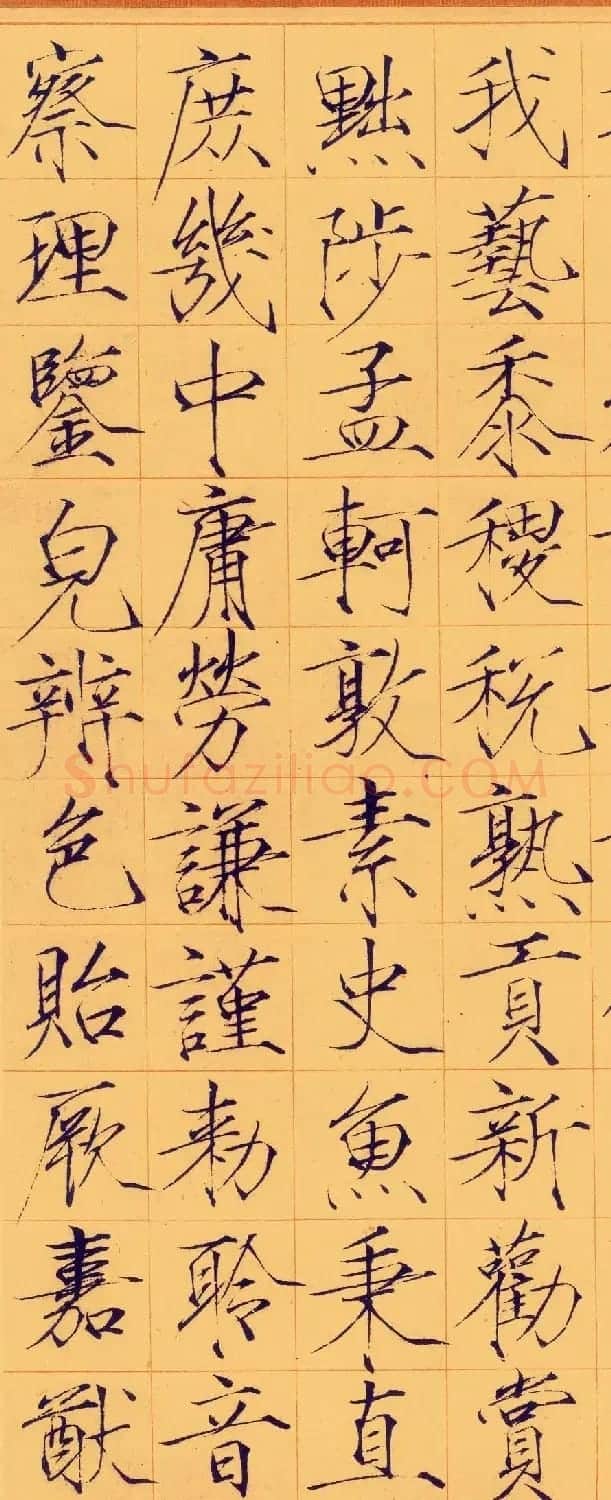 我藝黍稷稅熟貢新勸賞
黜陟孟軻敦素史魚秉直
庶幾中庸勞謙謹勅聆音
察理鑒皃辨色貽厥嘉猷
Shufaziliao.COM